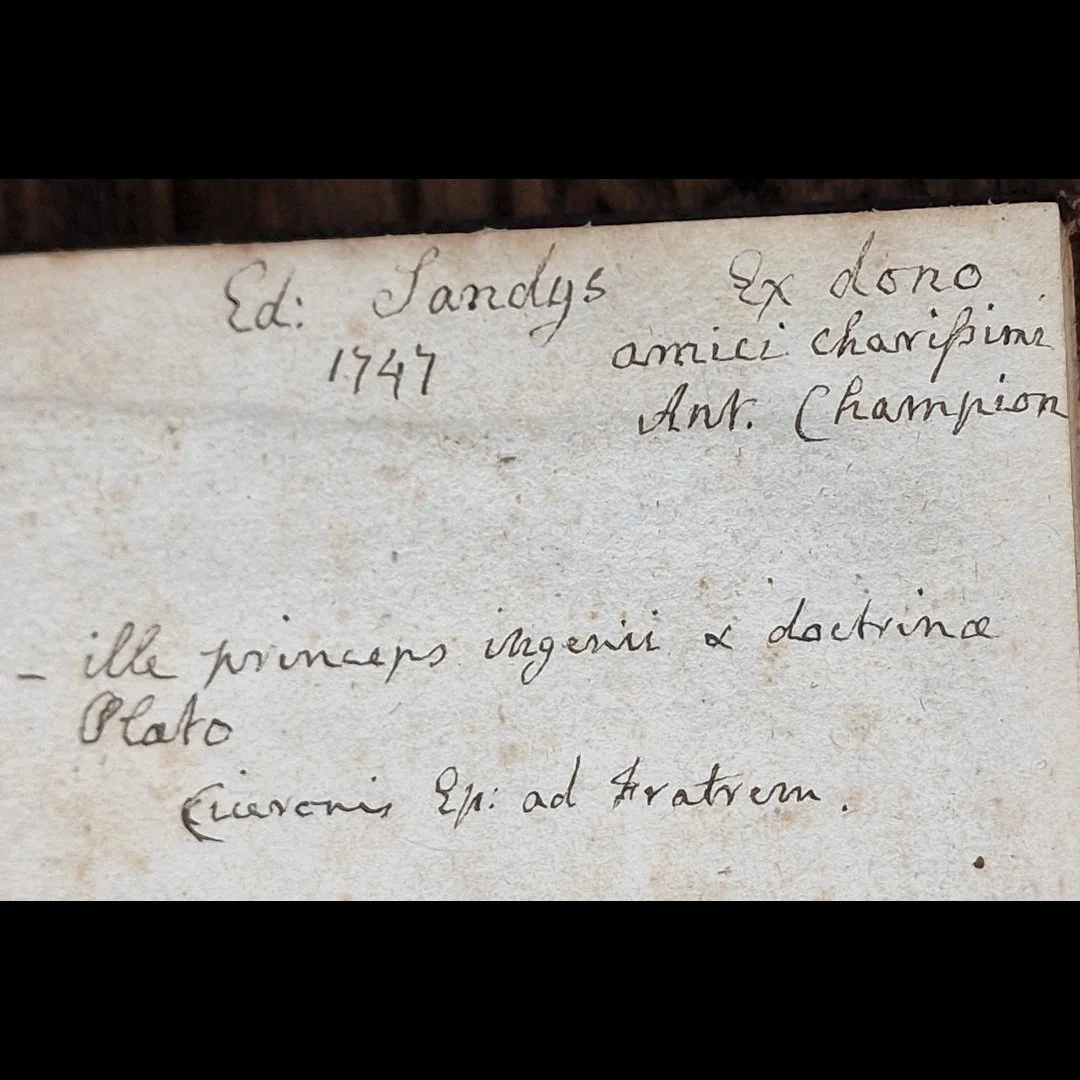 Ed: Sandys
1747
Ex dono
amici chariſsimi
Ant. Champion
- ille princeps ingenii & doctrinæ
Plato
Ciceronis Ep: ad Fratrem.